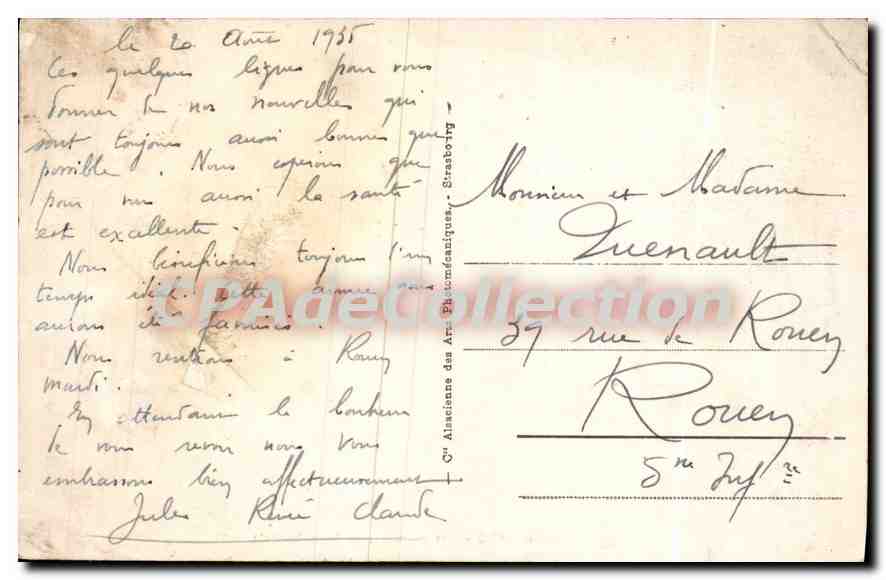 le 20 Août 1935
Ces quelques lignes pour vous
donner de nos nouvelles qui
sont toujours aussi bonnes que
possible. Nous espérons que
pour vous aussi la santé
est excellente.
Nous bénéficions toujours d'un
temps idéal cette année nous
aurons été favorisés.
Nous rentrons à Rouen
mardi.
En attendant le bonheur
de vous revoir nous vous
embrassons bien affectueusement
Jules René Claude
Cie Alsacienne des Arts Photomécaniques, - Strasbourg -
Monsieur et Madame
Quenault
39 rue de Rouen
Rouen
Sne Infre
CPAdeCollection